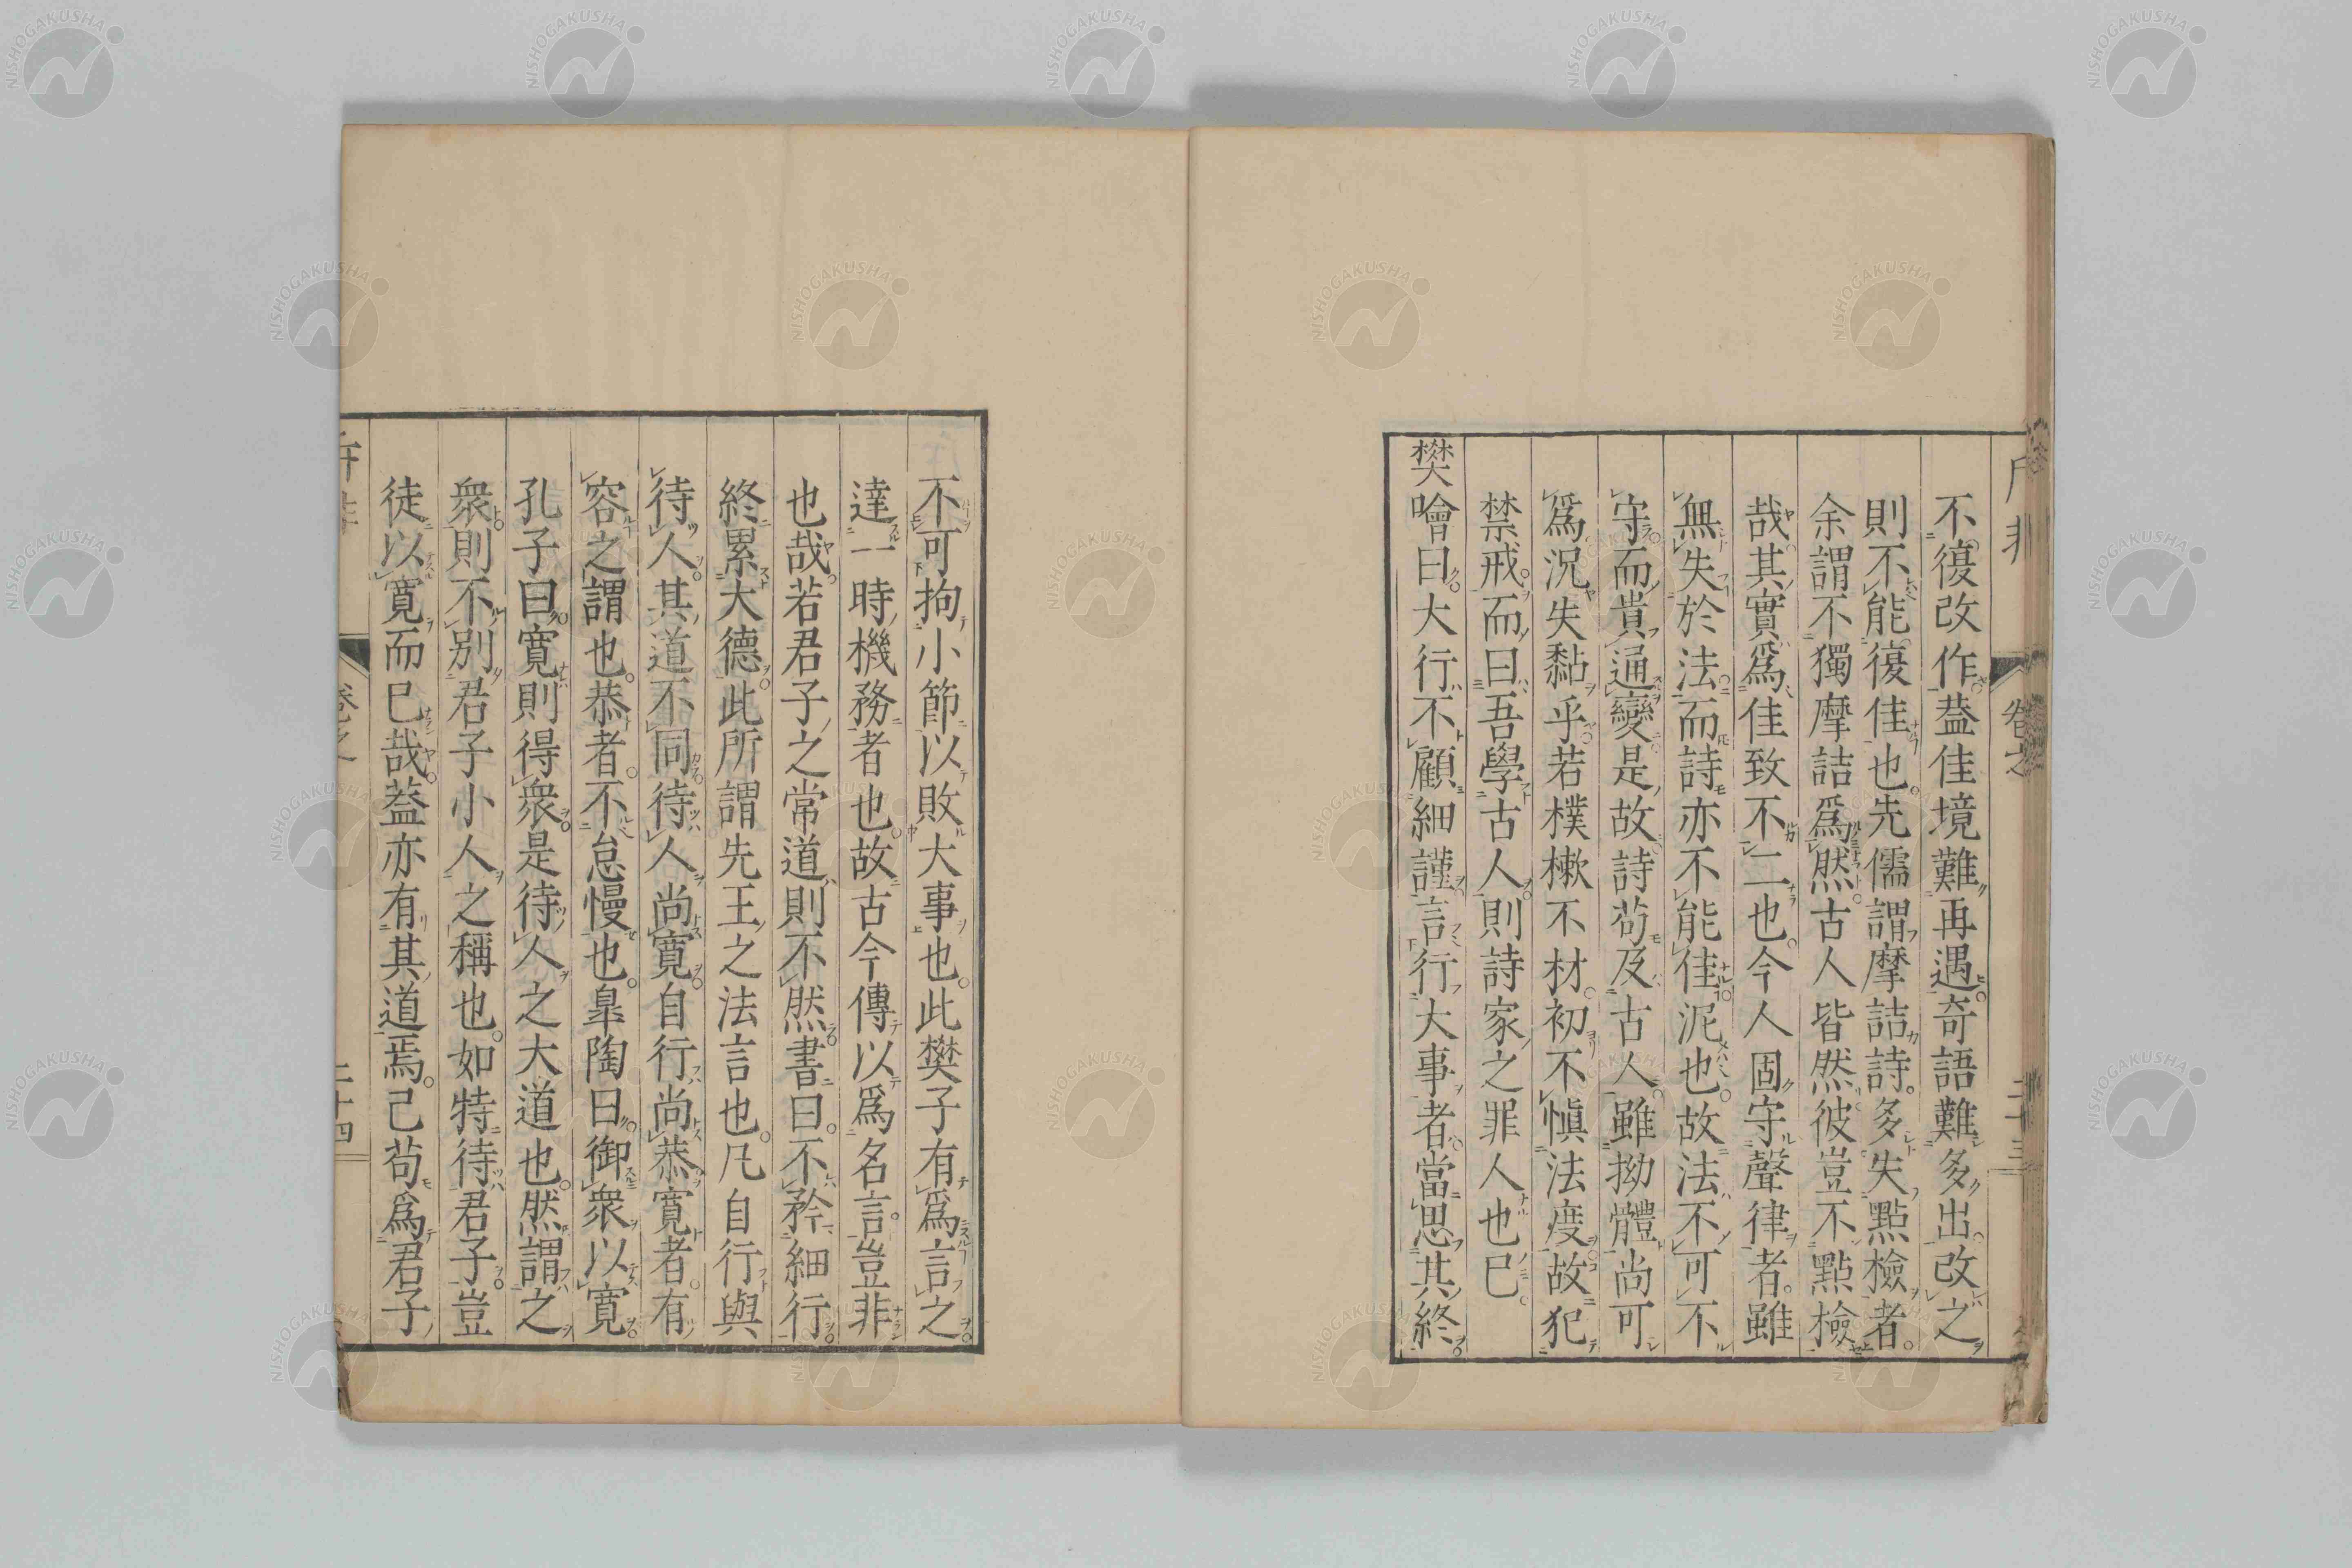 不復改作葢佳境難再遇奇語難多出改之
則不能復佳也先儒謂摩詰詩多失點檢者
余謂不獨摩詰爲然古人皆然彼豈不點檢
哉其實爲佳致不二也今人固守聲律者雖
無失於法而詩亦不能佳泥也故法不可不
守而貴通變是故詩苟及古人雖拗體尚可
爲況失黏乎若樸樕不材初不愼法度故犯
禁戒而曰吾學古人則詩家之罪人也已
樊噲曰大行不顧細謹言行大事者當思其終
不可拘小節以敗大事也此樊子有爲言之
達一時機務者也故古今傳以爲名言豈非
也哉若君子之常道則不然書曰不矜細行
終累大德此所謂先王之法言也凡自行與
待人其道不同待人尚寬自行尚恭寬者有
容之謂也恭者不怠慢也臯陶曰御衆以寬
孔子曰寬則得衆是待人之大道也然謂之
衆則不別君子小人之稱也如特待君子豈
徒以寬而已哉葢亦有其道焉己苟爲君子
二十四
NISHOGAKUSHA